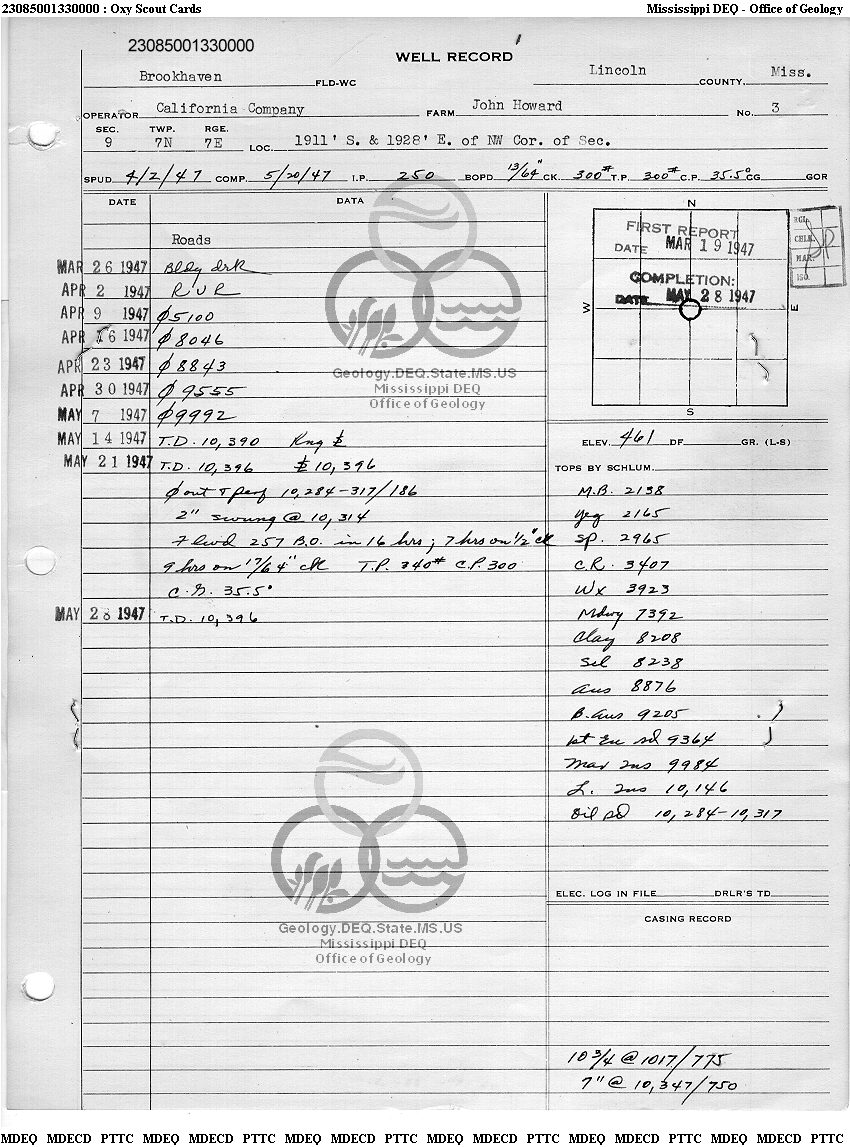 23085001330000 : Oxy Scout Cards Mississippi DEQ - Office of Geology
23085001330000
WELL RECORD
Brookhaven FLD-WC Lincoln COUNTY, Miss.
OPERATOR California Company FARM John Howard No. 3
SEC. TWP. RGE.
9 7N 7E LOC. 1911' S. & 1928' E. of NW Cor. of Sec.
SPUD 4/2/47 COMP. 5/20/47 I.P. 250 BOPD 13/64" CK. 300# T.P. 300# C.P. 35.5° CG GOR
DATE DATA
Roads
MAR 26 1947 Bldg drk
APR 2 1947 R U R
APR 9 1947 Ø5100
APR 16 1947 Ø8046
APR 23 1947 Ø8843
APR 30 1947 Ø 9555
MAY 7 1947 Ø9992
MAY 14 1947 T.D. 10,390
MAY 21 1947 T.D. 10,396 10,396
Ø out T perf 10,284-317/186
2" swung @ 10,314
Flwd 257 B.O. in 16 hrs; 7 hrs on 1/2" ck
9 hrs on 17/64" ck T.P. 340# C.P. 300
C.G. 35.5°
MAY 28 1947 T.D. 10,396
N
FIRST REPORT
DATE MAR 19 1947
COMPLETION:
DATE MAY 28 1947
W E
S
CHLK.
MAR.
ISO.
ELEV. 461 DF GR. (L-S)
TOPS BY SCHLUM.
M.B. 2138
Yeg 2165
Sp. 2965
C.R. 3407
Wx 3923
Mdwy 7392
Clay 8208
Sel 8238
Aus 8876
B. Aus 9205
1st Eu sd 9364
Mar Tus 9984
L. Tus 10,146
Oil sd 10,284-10,317
ELEC. LOG IN FILE DRLR'S TD
CASING RECORD
10 3/4 @ 1017/775
7" @ 10,347/750
Geology.DEQ.State.MS.US
Mississippi DEQ
Office of Geology
Geology.DEQ.State.MS.US
Mississippi DEQ
Office of Geology
MDEQ MDECD PTTC MDEQ MDECD PTTC MDEQ MDECD PTTC MDEQ MDECD PTTC MDEQ MDECD PTTC MDEQ MDECD PTTC